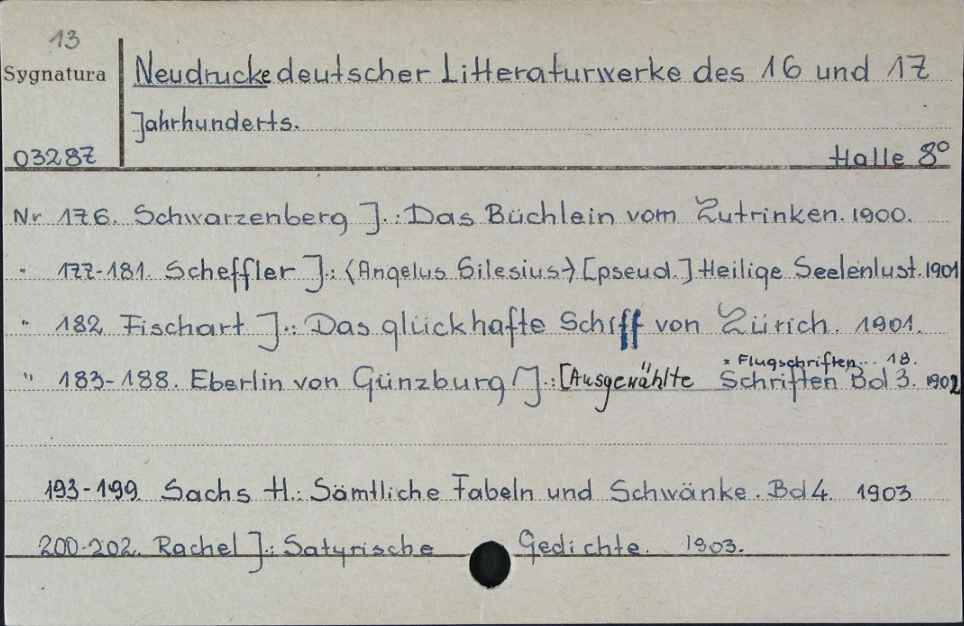 13
Sygnatura
Neudrucke deutscher Litteraturwerke des 16 und 17
Jahrhunderts.
03287
Halle 8°
Nr 176. Schwarzenberg J.: Das Büchlein vom Zutrinken. 1900.
" 177-181. Scheffler J.: (Angelus Silesius) [pseud.] Heilige Seelenlust. 1901
" 182 Fischart J.: Das glückhafte Schiff von Zürich. 1901.
= Flugschriften... 18.
" 183-188. Eberlin von Günzburg J.: [Ausgewählte Schriften Bd 3. 1902
193-199 Sachs H.: Sämtliche Fabeln und Schwänke. Bd 4. 1903
200-202. Rachel J.: Satyrische Gedichte. 1903.